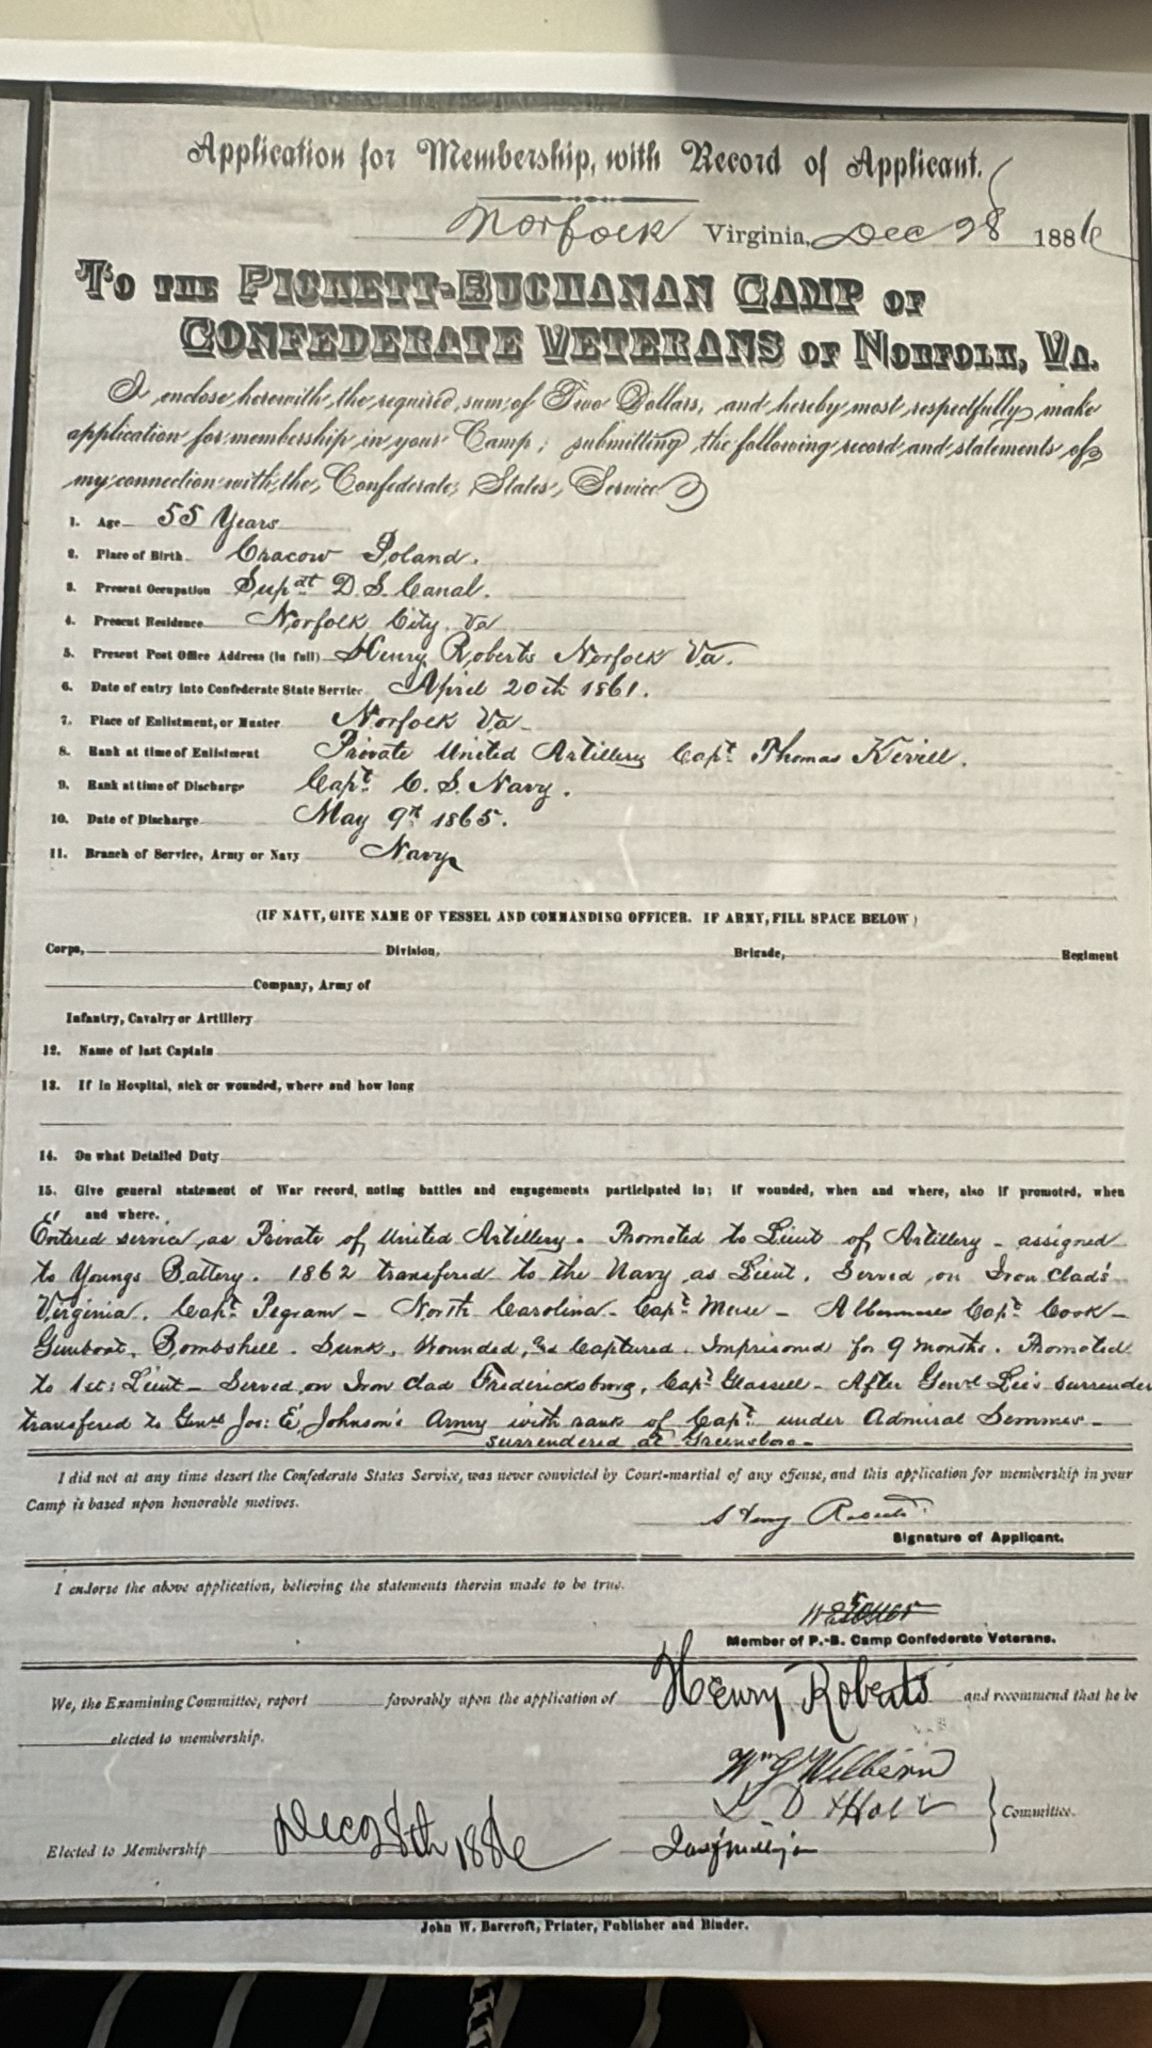 Application for Membership, with Record of Applicant.
Norfolk Virginia, Dec 28 1886
To the Pickett-Buchanan Camp of
Confederate Veterans of Norfolk, Va.
I enclose herewith the required sum of Two Dollars, and hereby most respectfully make
application for membership in your Camp; submitting the following record and statements of
my connection with the Confederate States Service
1. Age 55 Years
2. Place of Birth Cracow Poland.
3. Present Occupation Supat D. S. Canal.
4. Present Residence Norfolk City Va
5. Present Post Office Address (in full) Henry Roberts Norfolk Va.
6. Date of entry into Confederate State Service April 20th 1861.
7. Place of Enlistment, or Muster Norfolk Va
8. Rank at time of Enlistment Private United Artillery Capt Thomas Kevill.
9. Rank at time of Discharge Capt C. S. Navy.
10. Date of Discharge May 9th 1865.
11. Branch of Service, Army or Navy Navy
(IF NAVY, GIVE NAME OF VESSEL AND COMMANDING OFFICER. IF ARMY, FILL SPACE BELOW)
Corps, Division, Brigade, Regiment
Company, Army of
Infantry, Cavalry or Artillery
12. Name of last Captain
13. If in Hospital, sick or wounded, where and how long
14. On what Detailed Duty
15. Give general statement of War record, noting battles and engagements participated in; if wounded, when and where, also if promoted, when
and where.
Entered service as Private of United Artillery. Promoted to Lieut of Artillery - assigned
to Youngs Battery. 1862 transfered to the Navy as Lieut. Served on Iron Clad's
Virginia. Capt Pegram - North Carolina - Capt Muse - Albemarle Capt Cook -
Gunboat. Bombshell. Sunk, Wounded, and Captured. Imprisoned for 9 months. Promoted
to 1st: Lieut - Served on Iron Clad Fredericksburg, Capt Glassell - After Genrl Lee's surrender
transfered to Genrl Jos: E. Johnson's Army with rank of Capt under Admiral Semmes -
surrendered at Greensboro -
I did not at any time desert the Confederate States Service, was never convicted by Court-martial of any offense, and this application for membership in your
Camp is based upon honorable motives.
Henry Roberts
Signature of Applicant.
I endorse the above application, believing the statements therein made to be true.
Member of P.-B. Camp Confederate Veterans.
We, the Examining Committee, report favorably upon the application of Henry Roberts and recommend that he be
elected to membership.
Wm G Wilbern
Committee.
Elected to Membership Dec 28th 1886
John W. Barcroft, Printer, Publisher and Binder.